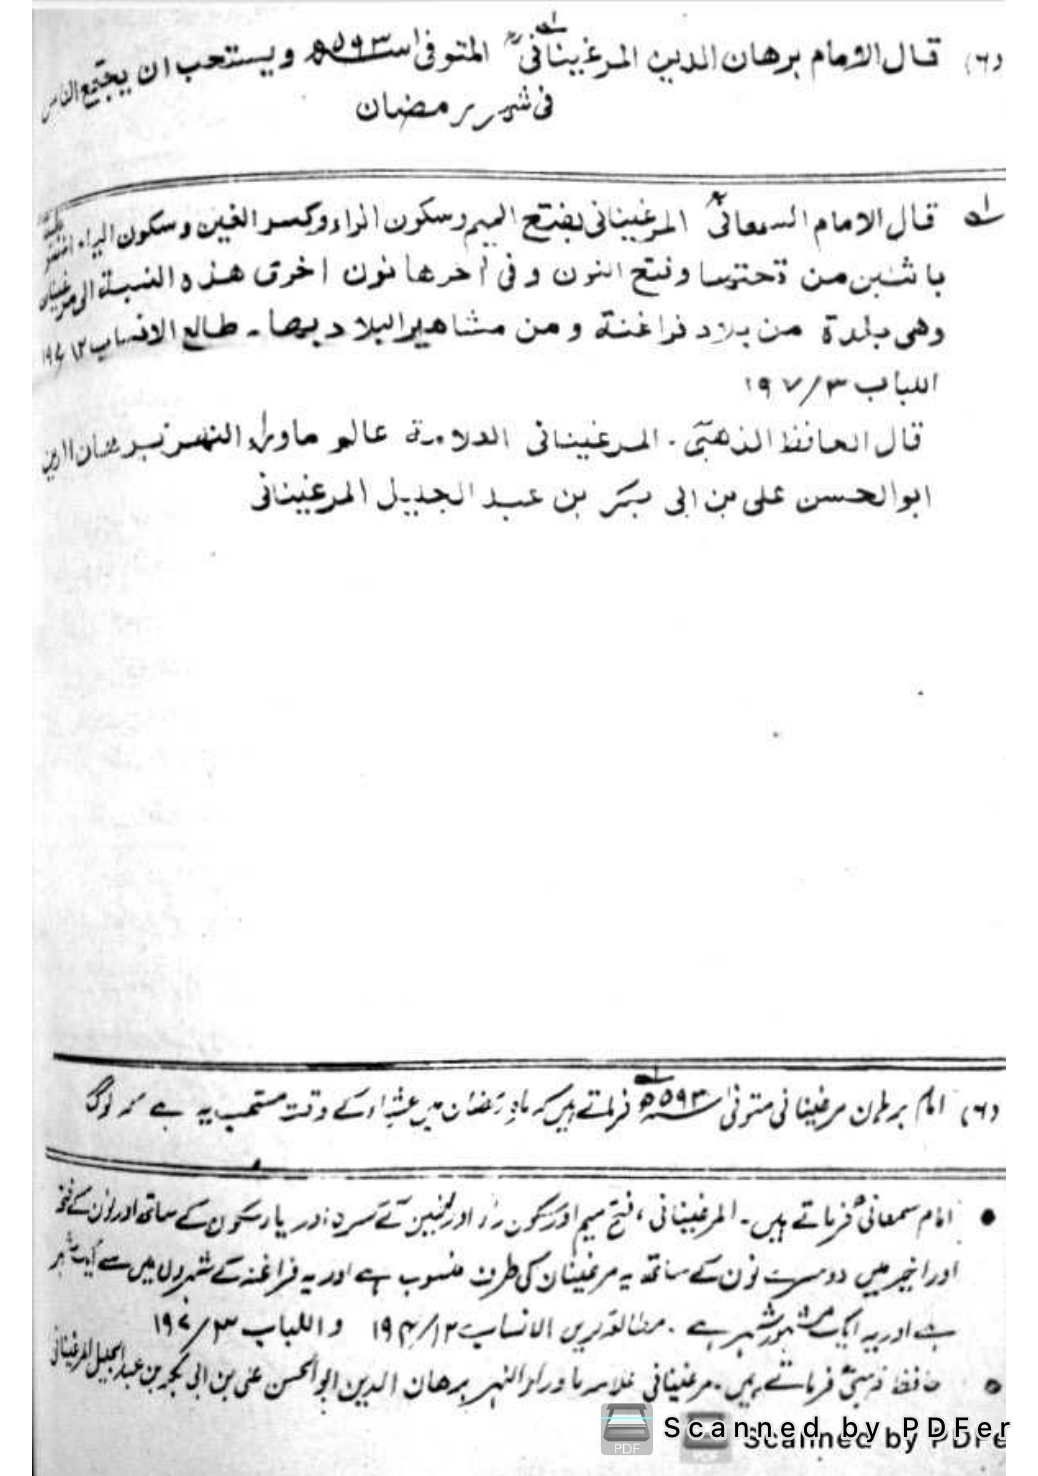 (٦) قال الامام برهان الدين المرغيناني المتوفى ٥٩٣ھ ويستحب ان يجتمع الناس
فى شهر رمضان
لہ قال الامام السمعانی المرغینانی بفتح المیم وسکون الراء وکسر الغین وسکون الیاء
باثنین من تحتها وفتح النون وفی اخرها نون اخری هذه النسبة الی مرغینان
وهی بلدة من بلاد فراغنة ومن مشاهیر البلاد بها۔ طالع الانساب
اللباب ١٩٧/٣
قال الحافظ الذهبی۔ المرغینانی العلامة عالم ماوراء النهر برهان الدین
ابوالحسن علی بن ابی بکر بن عبد الجلیل المرغینانی
(٦) امام برہان مرغینانی متوفی ٥٩٣ھ فرماتے ہیں کہ ماہ رمضان میں عشاء کے وقت مستحب یہ ہے کہ لوگ
● امام سمعانی فرماتے ہیں۔ المرغینانی، فتح میم اور سکون راء اور غین کے کسرہ اور یاء سکون کے ساتھ اور نون کے فتحہ
اور اخیر میں دوسرے نون کے ساتھ یہ مرغینان کی طرف منسوب ہے اور یہ فراغنہ کے شہروں میں سے ایک شہر
ہے اور یہ ایک مشہور شہر ہے۔ مطالعہ کریں الانساب و اللباب ١٩٧/٣
● حافظ ذہبی فرماتے ہیں۔ مرغینانی علامہ ماوراء النہر برھان الدین ابو الحسن علی بن ابی بکر بن عبد الجلیل المرغینانی
Scanned by PDFer
Scanned by PDFe